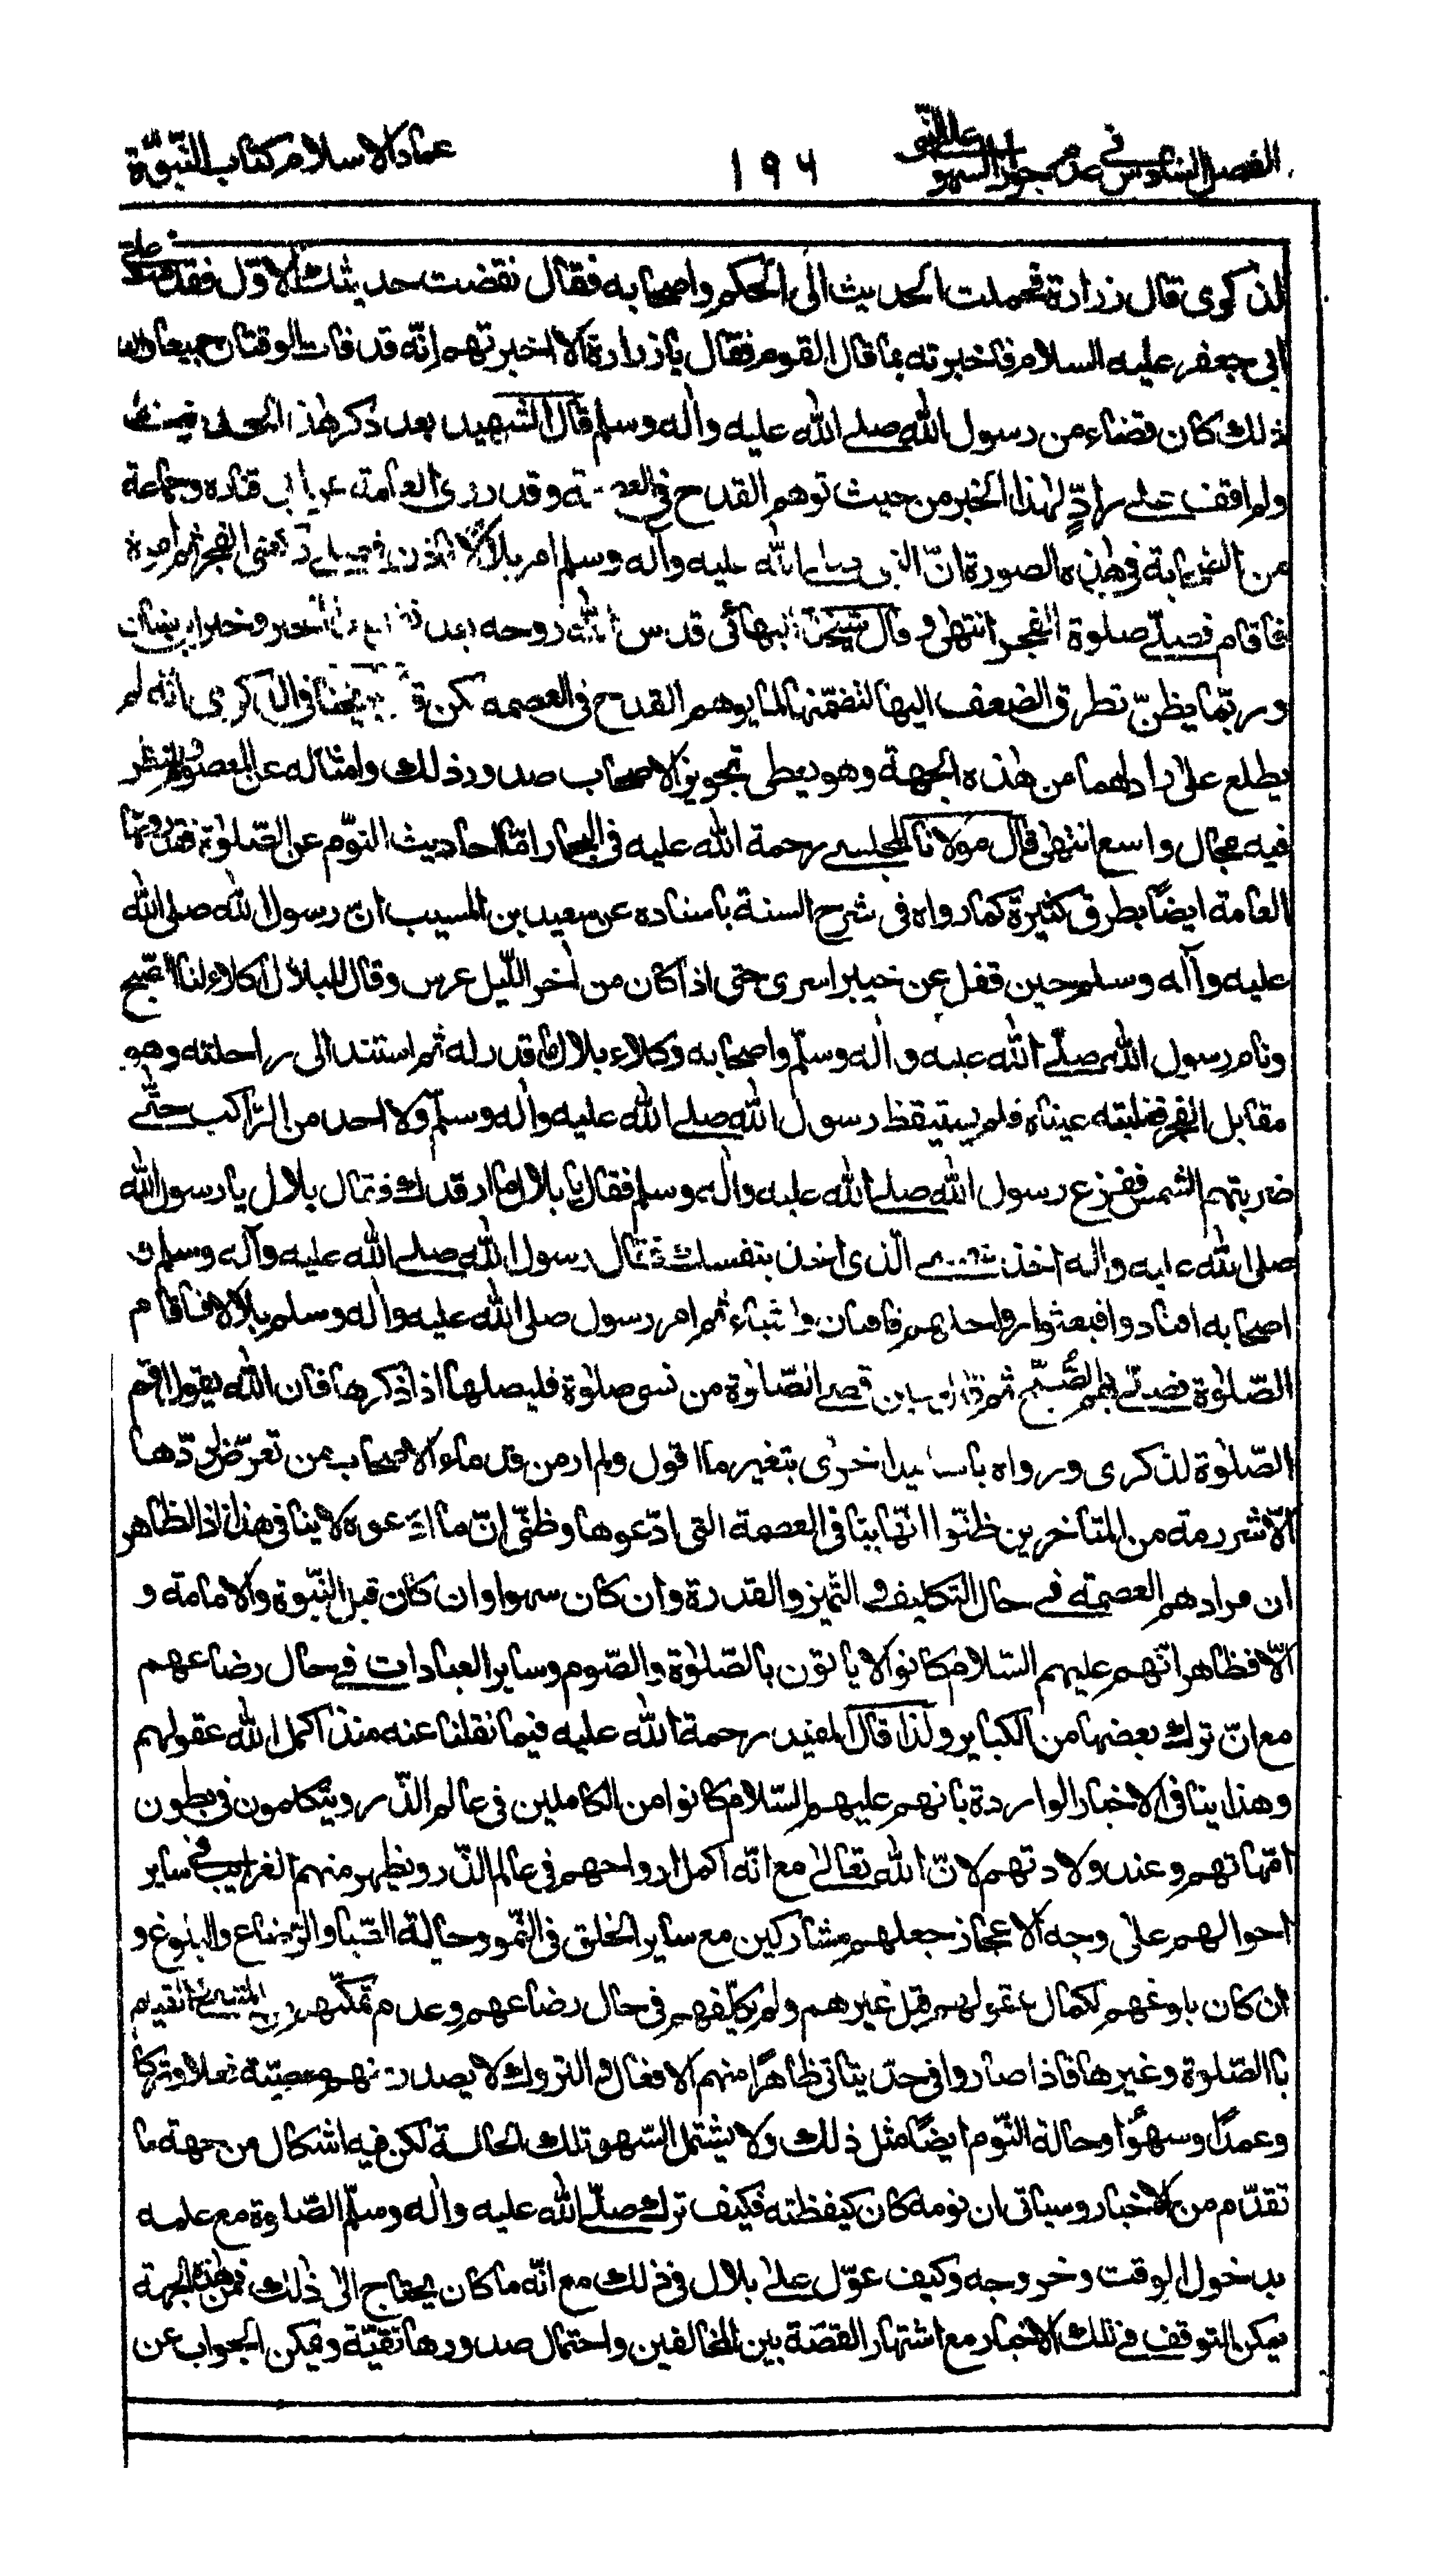 الفصل السادس في عدم جواز السهو على النبي
١٩٦
عماد الاسلام كتاب النبوّة
لذكرى قال زرارة فحملت الحديث الى الحكم واصحابه فقال نقضت حديثك الاوّل فقدمت على
ابي جعفر عليه السلام فاخبرته بما قال القوم فقال يا زرارة الا اخبرتهم انّه قد فات الوقتان جميعا وان
ذلك كان قضاء من رسول الله صلى الله عليه واله وسلم قال الشهيد بعد ذكر هذا الحديث
ولم اقف على رادٍّ لهذا الخبر من حيث توهم القدح في العصمة وقد روى العامة عن ابي قتاده وجماعة
من الصحابة في هذه الصورة انّ النبي صلى الله عليه وآله وسلم امر بلالا فاذن فصلى ركعتي الفجر ثم امره
فاقام فصلى صلوة الفجر انتهى وقال شيخنا البهائى قدس الله روحه بعد نقل هذا الخبر وخبر ابن سنان
وربّما يظنّ تطرق الضعف اليها لتضمّنها لما يوهم القدح في العصمه لكن قال شيخنا في الذكرى انّه لم
يطلع على راد لهما من هذه الجهة وهو يعطى تجويز الاصحاب صدور ذلك وامثاله عن المعصوم وللنظر
فيه مجال واسع انتهى قال مولانا المجلسى رحمة الله عليه في البحار امّا احاديث النوّم عن الصّلوٰة فقد روتها
العامة ايضاً بطرق كثيرة كما رواه في شرح السنة باسناده عن سعيد بن المسيب ان رسول الله صلى الله
عليه وآله وسلم حين قفل عن خيبر اسرى حتى اذا كان من اخر اللّيل عرس وقال لبلال اكلاء لنا الصّبح
ونام رسول الله صلّى الله عليه واله وسلّم واصحابه وكلاء بلال ما قدر له ثم استند الى راحلته وهو
مقابل الفجر فغلبته عيناه فلم يستيقظ رسول الله صلى الله عليه واله وسلّم ولا احد من الرّاكب حتّى
ضربتهم الشمس ففزع رسول الله صلى الله عليه واله وسلم فقال يا بلال ما ارقدك فقال بلال يا رسول الله
صلى الله عليه واله اخذ بنفسى الّذى اخذ بنفسك فقال رسول الله صلى الله عليه وآله وسلم و
اصحابه اقتادوا فبعثوا رواحلهم فاقتادوا شياء ثم امر رسول صلى الله عليه واله وسلم بلالا فاقام
الصّلوٰة فصلّى بهم الصُّبّح ثم قال حين قضى الصّلوٰة من نسى صلوٰة فليصلها اذا ذكرها فان الله يقول اقم
الصّلوٰة لذكرى ورواه باسانيد اخرى بتغير ما اقول ولم ار من قدماء الاصحاب من تعرّض لردّها
الّا شرذمة من المتاخرين ظنّوا انّها ينافي العصمة التي ادّعوها وظنّى انّ ما ادّعوه لا ينافي هذا اذ الظاهر
ان مرادهم العصمته في حال التكليف والتميز والقدرة وان كان سهوا وان كان قبل النّبوّة والامامة و
الّا فظاهر انّهم عليهم السّلام كانوا لا ياتون بالصّلوٰة والصّوم وساير العبادات في حال رضاعهم
مع انّ ترك بعضها من الكباير ولذا قال المفيد رحمة الله عليه فيما نقلنا عنه منذ اكمل الله عقولهم
وهذا ينافي الاخبار الواردة بانهم عليهم السّلام كانوا من الكاملين في عالم الذّر ويتكلمون في بطون
امّهاتهم وعند ولادتهم لانّ الله تعالى مع انّه اكمل ارواحهم في عالم الذّر ويظهر منهم الغرايب في ساير
احوالهم على وجه الاعجاز جعلهم مشاركين مع ساير الخلق في النّمو وحالة الصّبا والرّضاع والبلوغ و
ان كان بلوغهم لكمال عقولهم قبل غيرهم ولم يكلّفهم في حال رضاعهم وعدم تمكّنهم من المشى والقيام
باالصّلوة وغيرها فاذا صاروا في حدّ يتاتى ظاهرًا منهم الافعال والتروك لا يصدر منهم معصيّة فعلا وتركا
وعمدًا وسهوًا وحالة النّوم ايضًا مثل ذلك ولا يشتمل السّهو تلك الحالة لكن فيه اشكال من جهة ما
تقدّم من الاخبار وسياتى ان نومه كان كيقظته فكيف ترك صلّى الله عليه واله وسلّم الصّلوة مع علمه
بدخول الوقت وخروجه وكيف عوّل على بلال في ذلك مع انّه ما كان يحتاج الى ذلك فمن هذه الجهة
يمكن التوقف في تلك الاخبار مع اشتهار القصّة بين المخالفين واحتمال صدورها تقيّة ويمكن الجواب عن